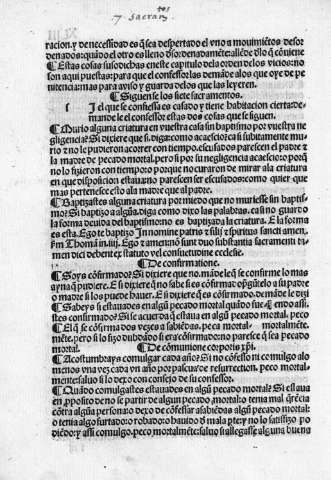 7 Sacram^tos
racion. y de necessidad es q̃ sea despertado el vno a mouimiẽtos desor
denados: quãdo el otro es lleno dsordenadamẽte: allẽde dlo q̃ cõuiene
¶ Estas cosas susodichas en este capitulo dela orden delos vicios: no
son aqui puestas: para que el confessor las demãde alos que oye de pe
nitencia: mas para auiso y guarda delos que las leyeren.
¶ Siguense los siete sacramentos.
Si el que se confiessa es casado y tiene habitacion cierta de-
mande le el confessor estas dos cosas que se siguen.
¶ Murio alguna criatura en vuestra casa sin baptismo por vuestra ne
gligencia? Si dixere que si. diga: como acaescio: ca si subitamente mu
rio z no le pudieron acorrer con tiempo. escusados parescen el padre z
la madre de pecado mortal. pero si por su negligencia acaescio: porq̃
no lo fizieron con tiempo z porque no curaron de mirar ala criatura
en que disposicion estaua: no parescen ser escusados: como quier que
mas pertenesce esto ala madre que al padre.
¶ Baptizastes alguna criatura por miedo que no muriesse sin baptis
mo? Si baptizo a algũa. diga como dixo las palabras. ca si no guardo
la forma deuida del baptismo no es baptizada la criatura. E la forma
es esta. Ego te baptizo In nomine patris z filij z spiritus sancti amen.
ꝑm Thomã in.iiij. Ego z amen nõ sunt duo substantia sacramenti ta
men dici debent ex statuto vel consuetudine ecclesie.
¶ De confirmatione.
¶ Soys cõfirmado? Si dixere que no. mãde le q̃ se confirme lo mas
ayna q̃ pudiere. E si dixere q̃ no sabe si es cõfirmado
o madre si los puede auer. E si dixere q̃ es cõfirmado. demãde le dizi
¶ Sabeys si estauades en algũ pecado mortal quãdo
stes confirmado? Si se acuerda q̃ estaua en algũ pecado mortal. peco
¶ El q̃ se cõfirma dos vezes a sabiẽdas. peca mortal- mortalmẽte.
mẽte. pero si lo fizo dubdãdo si era cõfirmado: no paresce q̃ sea pecado
mortal. ¶ De cõmunione corporis xp̃i.
¶ Acostumbrays comulgar cada año? Si no cõfesso ni comulgo alo
menos vna vez cada vn año por pascua de resurrection. peco mortal
mente: saluo si lo dexo con consejo de su confessor.
¶ Quãdo comulgastes estauades en algũ pecado mortal? Si estaua
en ꝓposito de no se partir de algun pecado mortal: o tenia mal q̃rẽcia
cõtra algũa persona: o dexo de cõfessar a sabiẽdas algũ pecado mortal:
o tenia algo furtado: o robado: o bauido d mala pte: z no lo satisfizo po
diẽdo: z assi comulgo. peco mortalmẽte: saluo si allegasse algũa buena